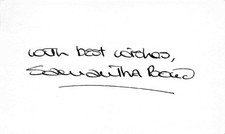 with best wishes,
Samantha Bond